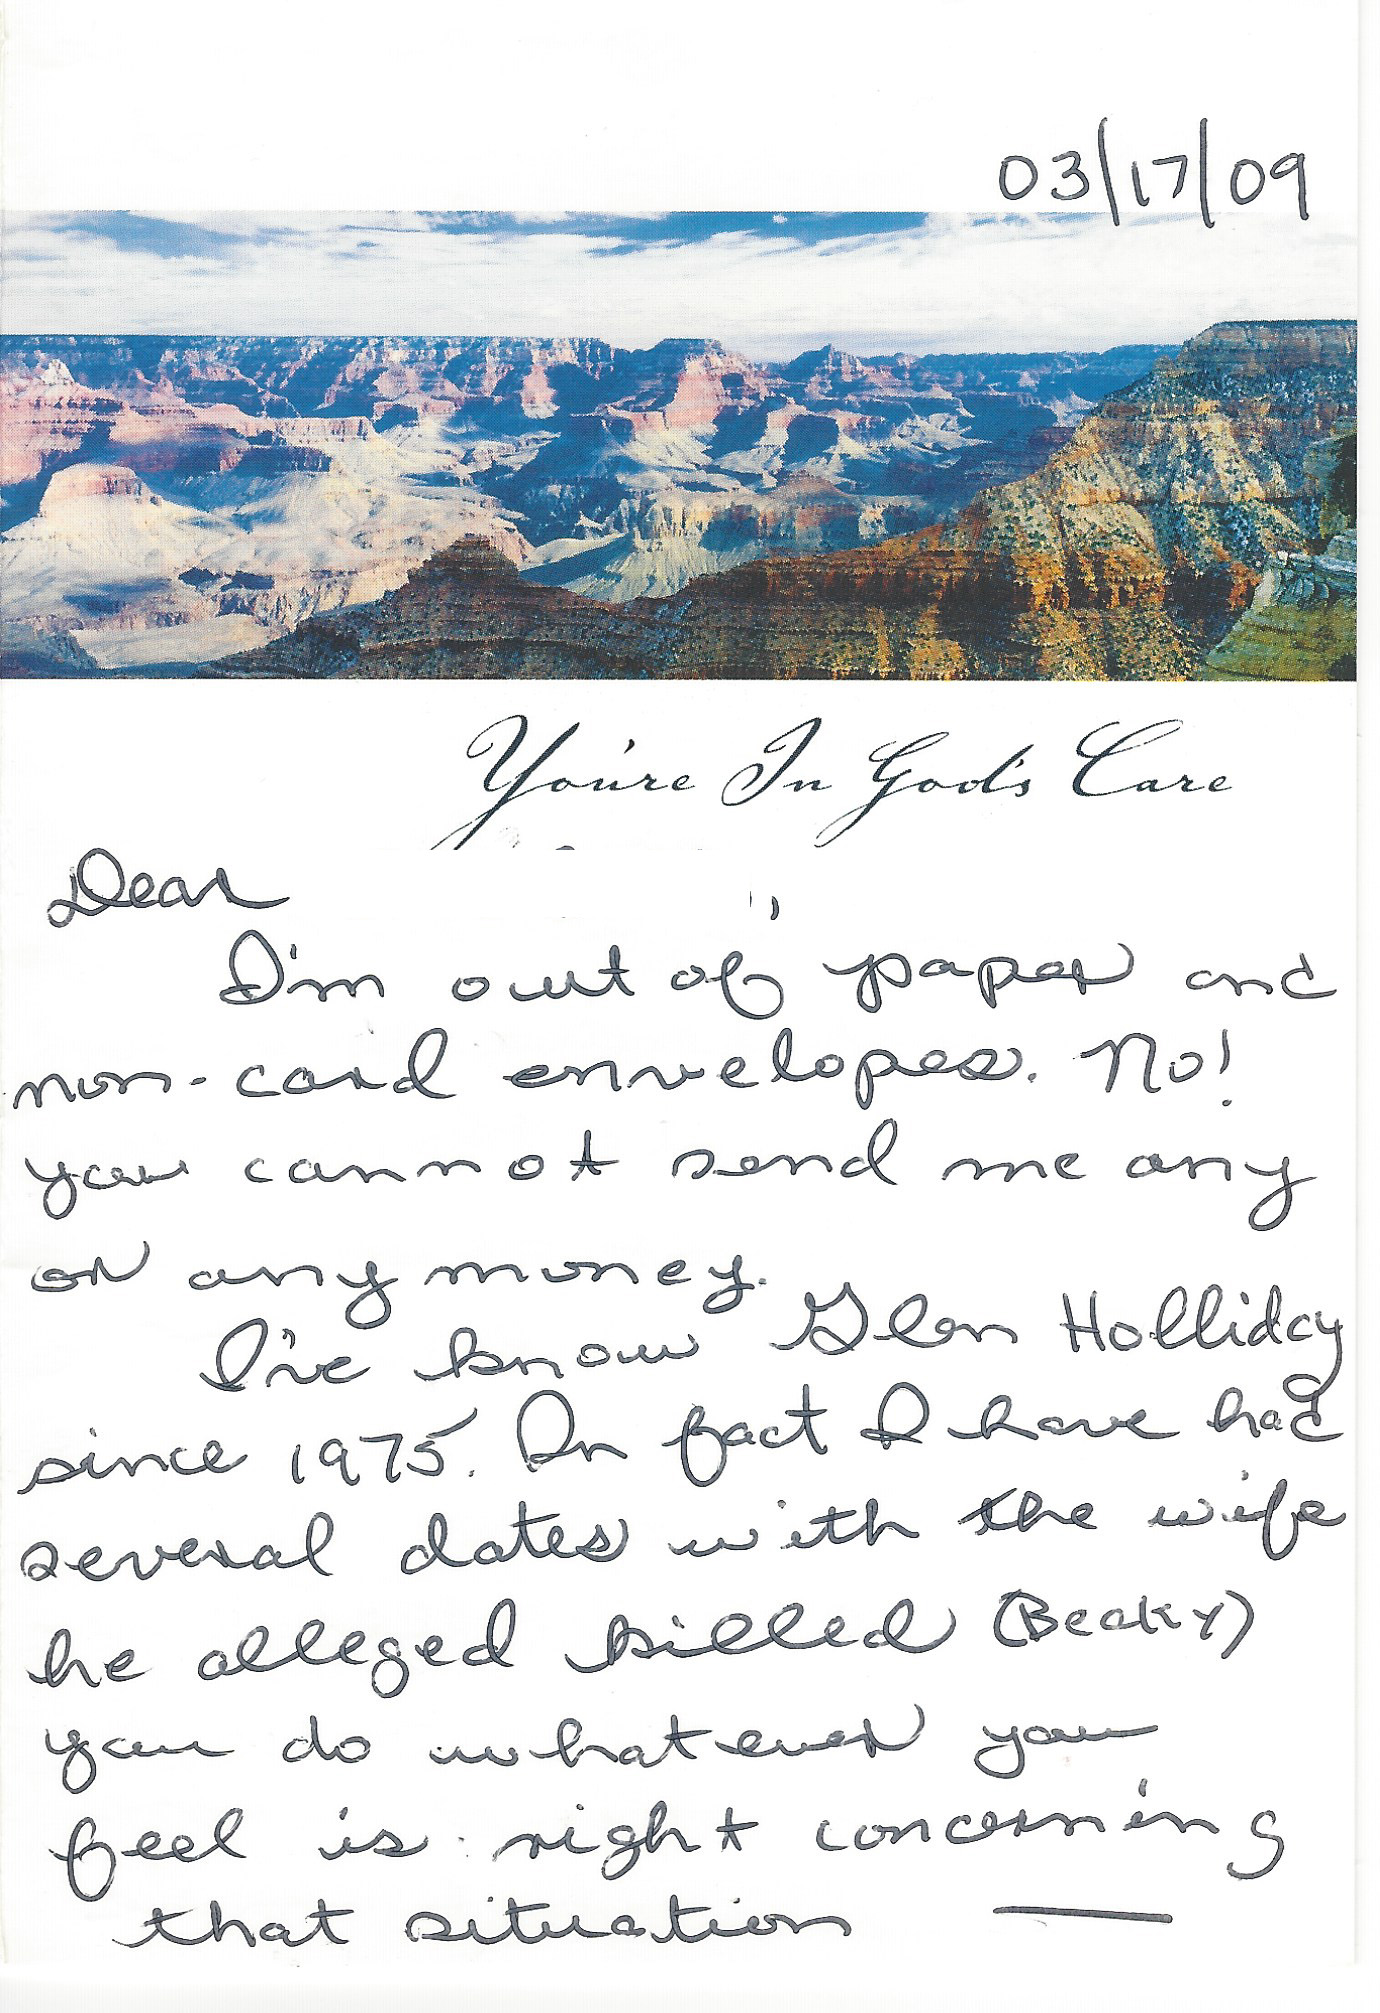 03/17/09
You're In God's Care
Dear
I'm out of paper and
non-card envelopes. No!
you cannot send me any
or any money.
I've know Glen Holliday
since 1975. In fact I have had
several dates with the wife
he alleged killed (Becky)
you do whatever you
feel is right concerning
that situation —